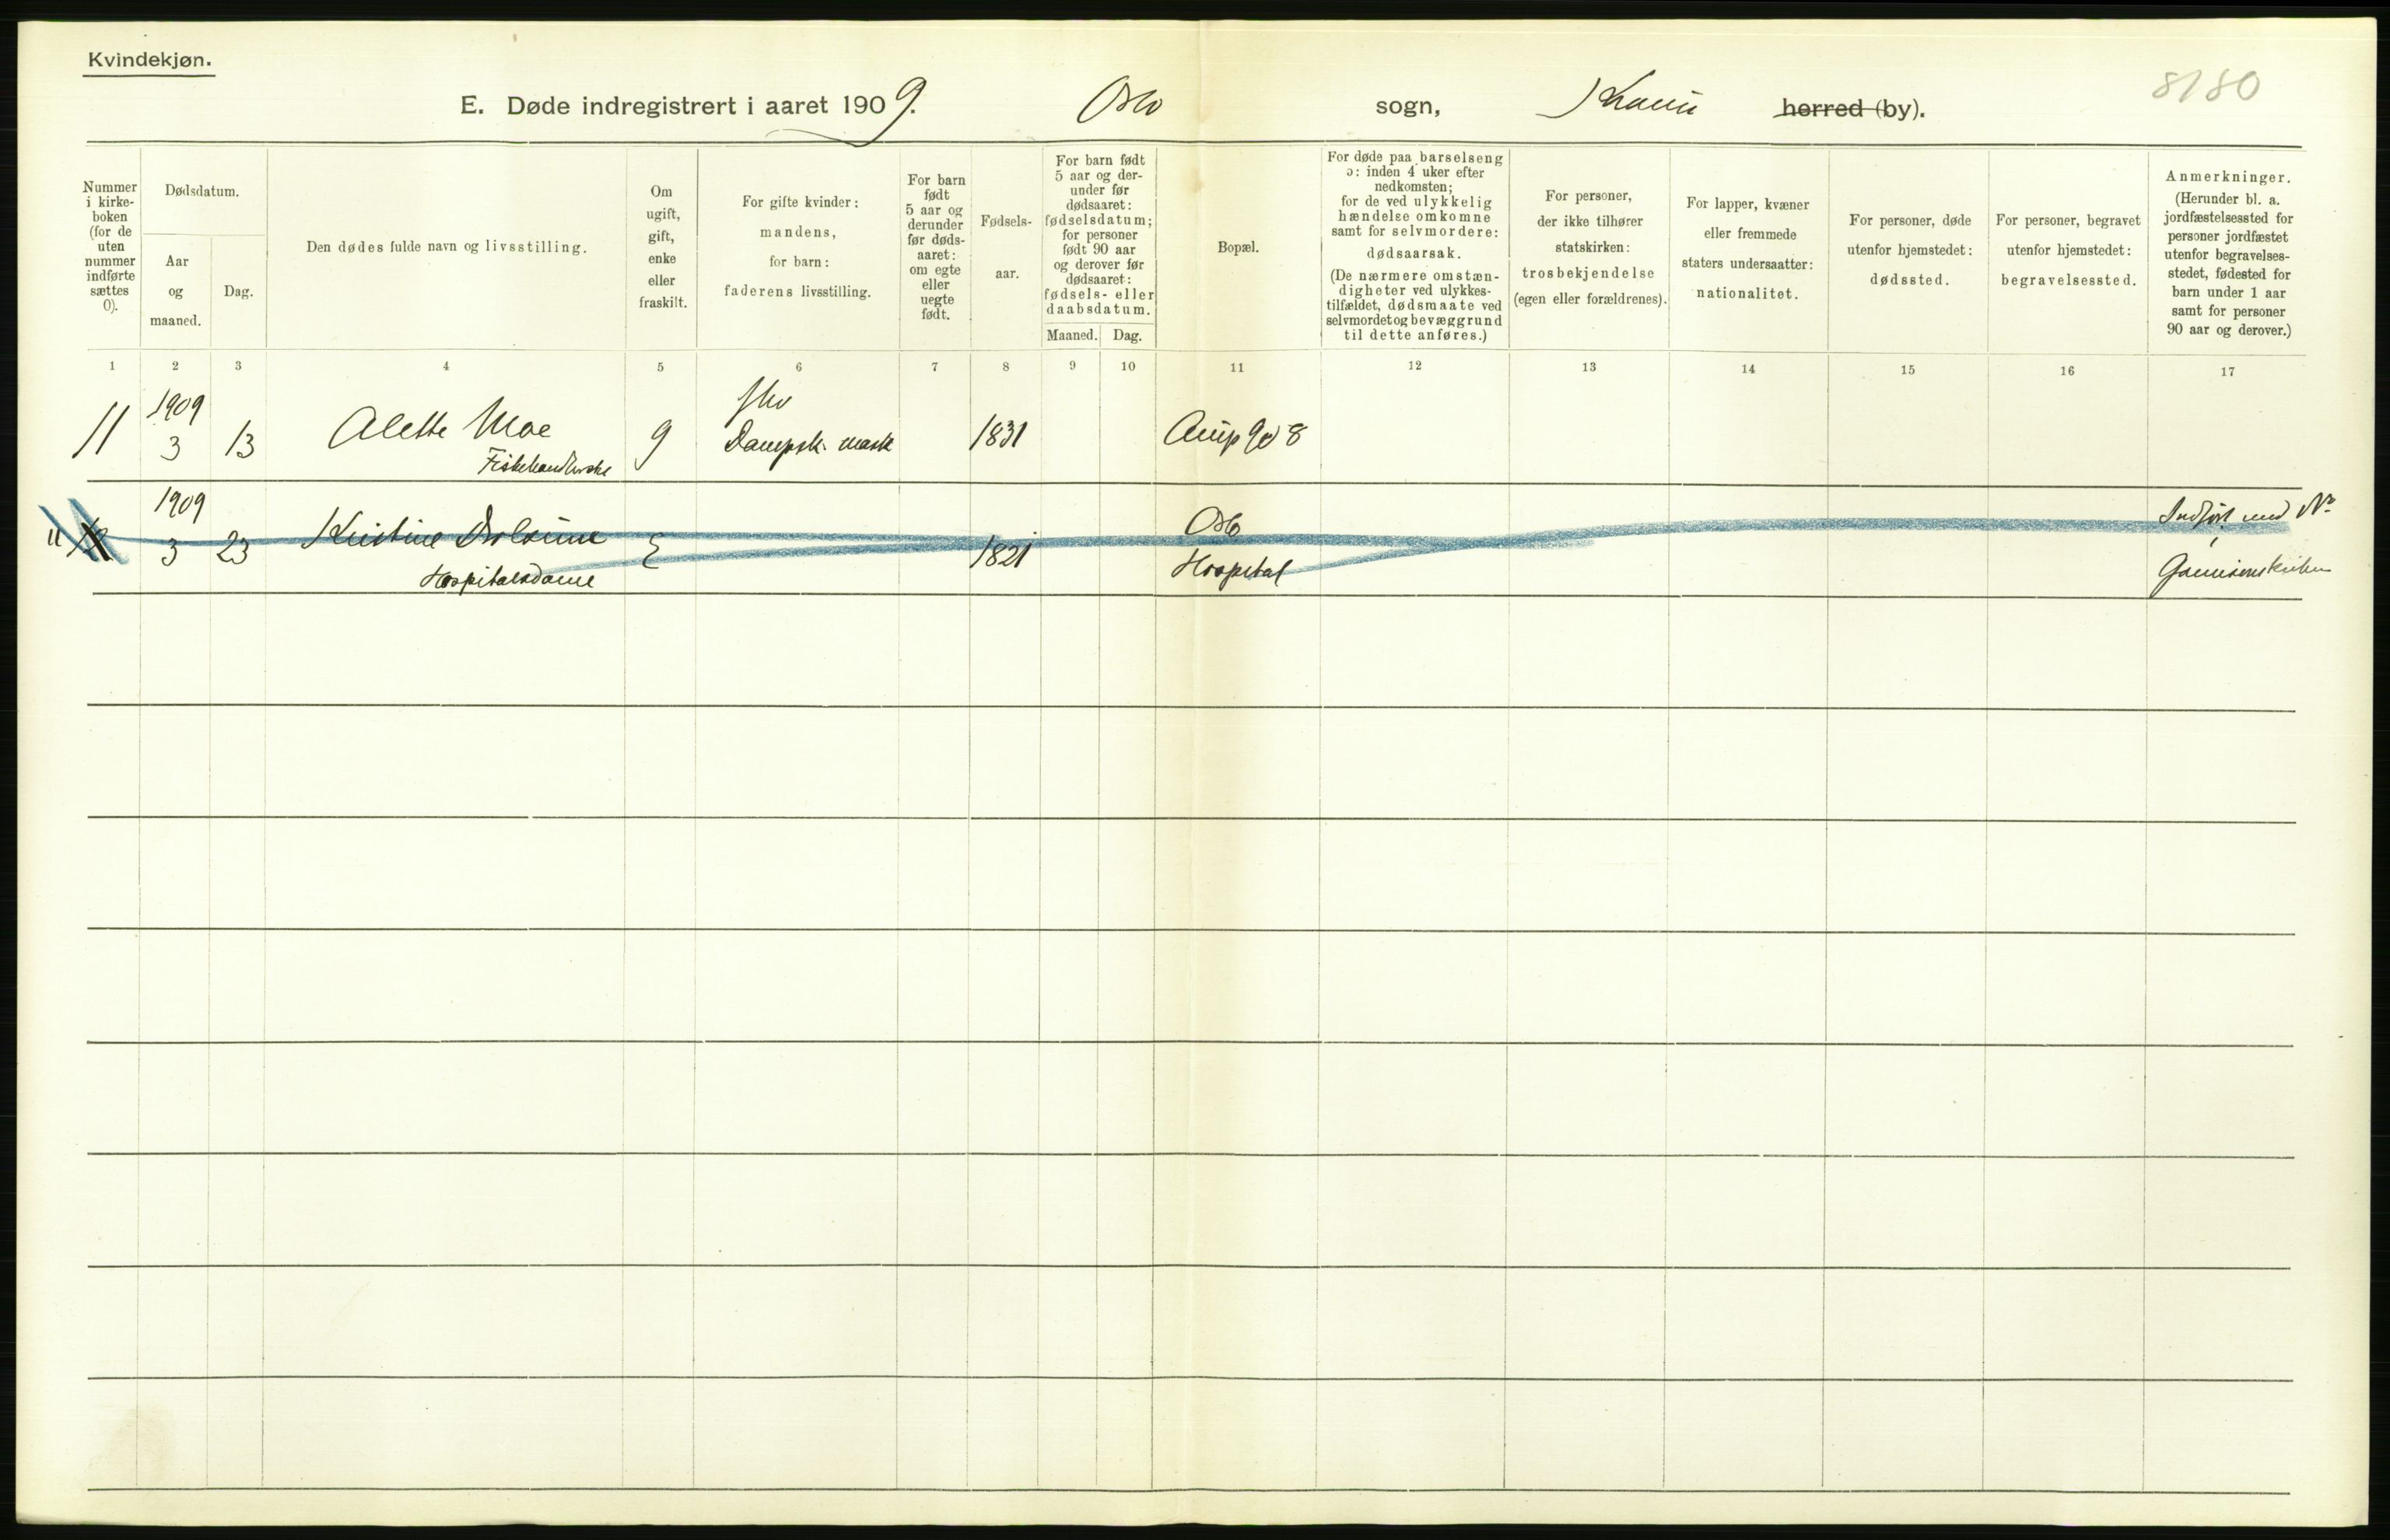 Kvindekjøn.
8180
E. Døde indregistrert i aaret 1909. Oslo sogn, herred (by).
Nummer
i kirke-
boken
(for de
uten
nummer
indførte
sættes
0).
Dødsdatum.
Aar
og
maaned.
Dag.
Den dødes fulde navn og livsstilling.
Om
ugift,
gift,
enke
eller
fraskilt.
For gifte kvinder:
mandens,
for barn:
faderens livsstilling.
For barn
født
5 aar og
derunder
før døds-
aaret:
om egte
eller
uegte
født.
Fødsels-
aar.
For barn født
5 aar og der-
under før
dødsaaret:
fødselsdatum;
for personer
født 90 aar
og derover før
dødsaaret:
fødsels- eller
daabsdatum.
Maaned. Dag.
Bopæl.
For døde paa barselseng
ɔ: inden 4 uker efter
nedkomsten;
for de ved ulykkelig
hændelse omkomne
samt for selvmordere:
dødsaarsak.
(De nærmere omstæn-
digheter ved ulykkes-
tilfældet, dødsmaate ved
selvmordet og bevæggrund
til dette anføres.)
For personer,
der ikke tilhører
statskirken:
trosbekjendelse
(egen eller forældrenes).
For lapper, kvæner
eller fremmede
staters undersaatter:
nationalitet.
For personer, døde
utenfor hjemstedet:
dødssted.
For personer, begravet
utenfor hjemstedet:
begravelsessted.
Anmerkninger.
(Herunder bl. a.
jordfæstelsessted for
personer jordfæstet
utenfor begravelses-
stedet, fødested for
barn under 1 aar
samt for personer
90 aar og derover.)
1 2 3 4 5 6 7 8 9 10 11 12 13 14 15 16 17
1909
11 3 13 Alette Moe g Dampsk. mask 1831 8
Fiskehandlerske
1909
3 23 Kristine E 1821 Oslo
Hospitalsdame Hospital
Indført med Nr
Garnisonskirken